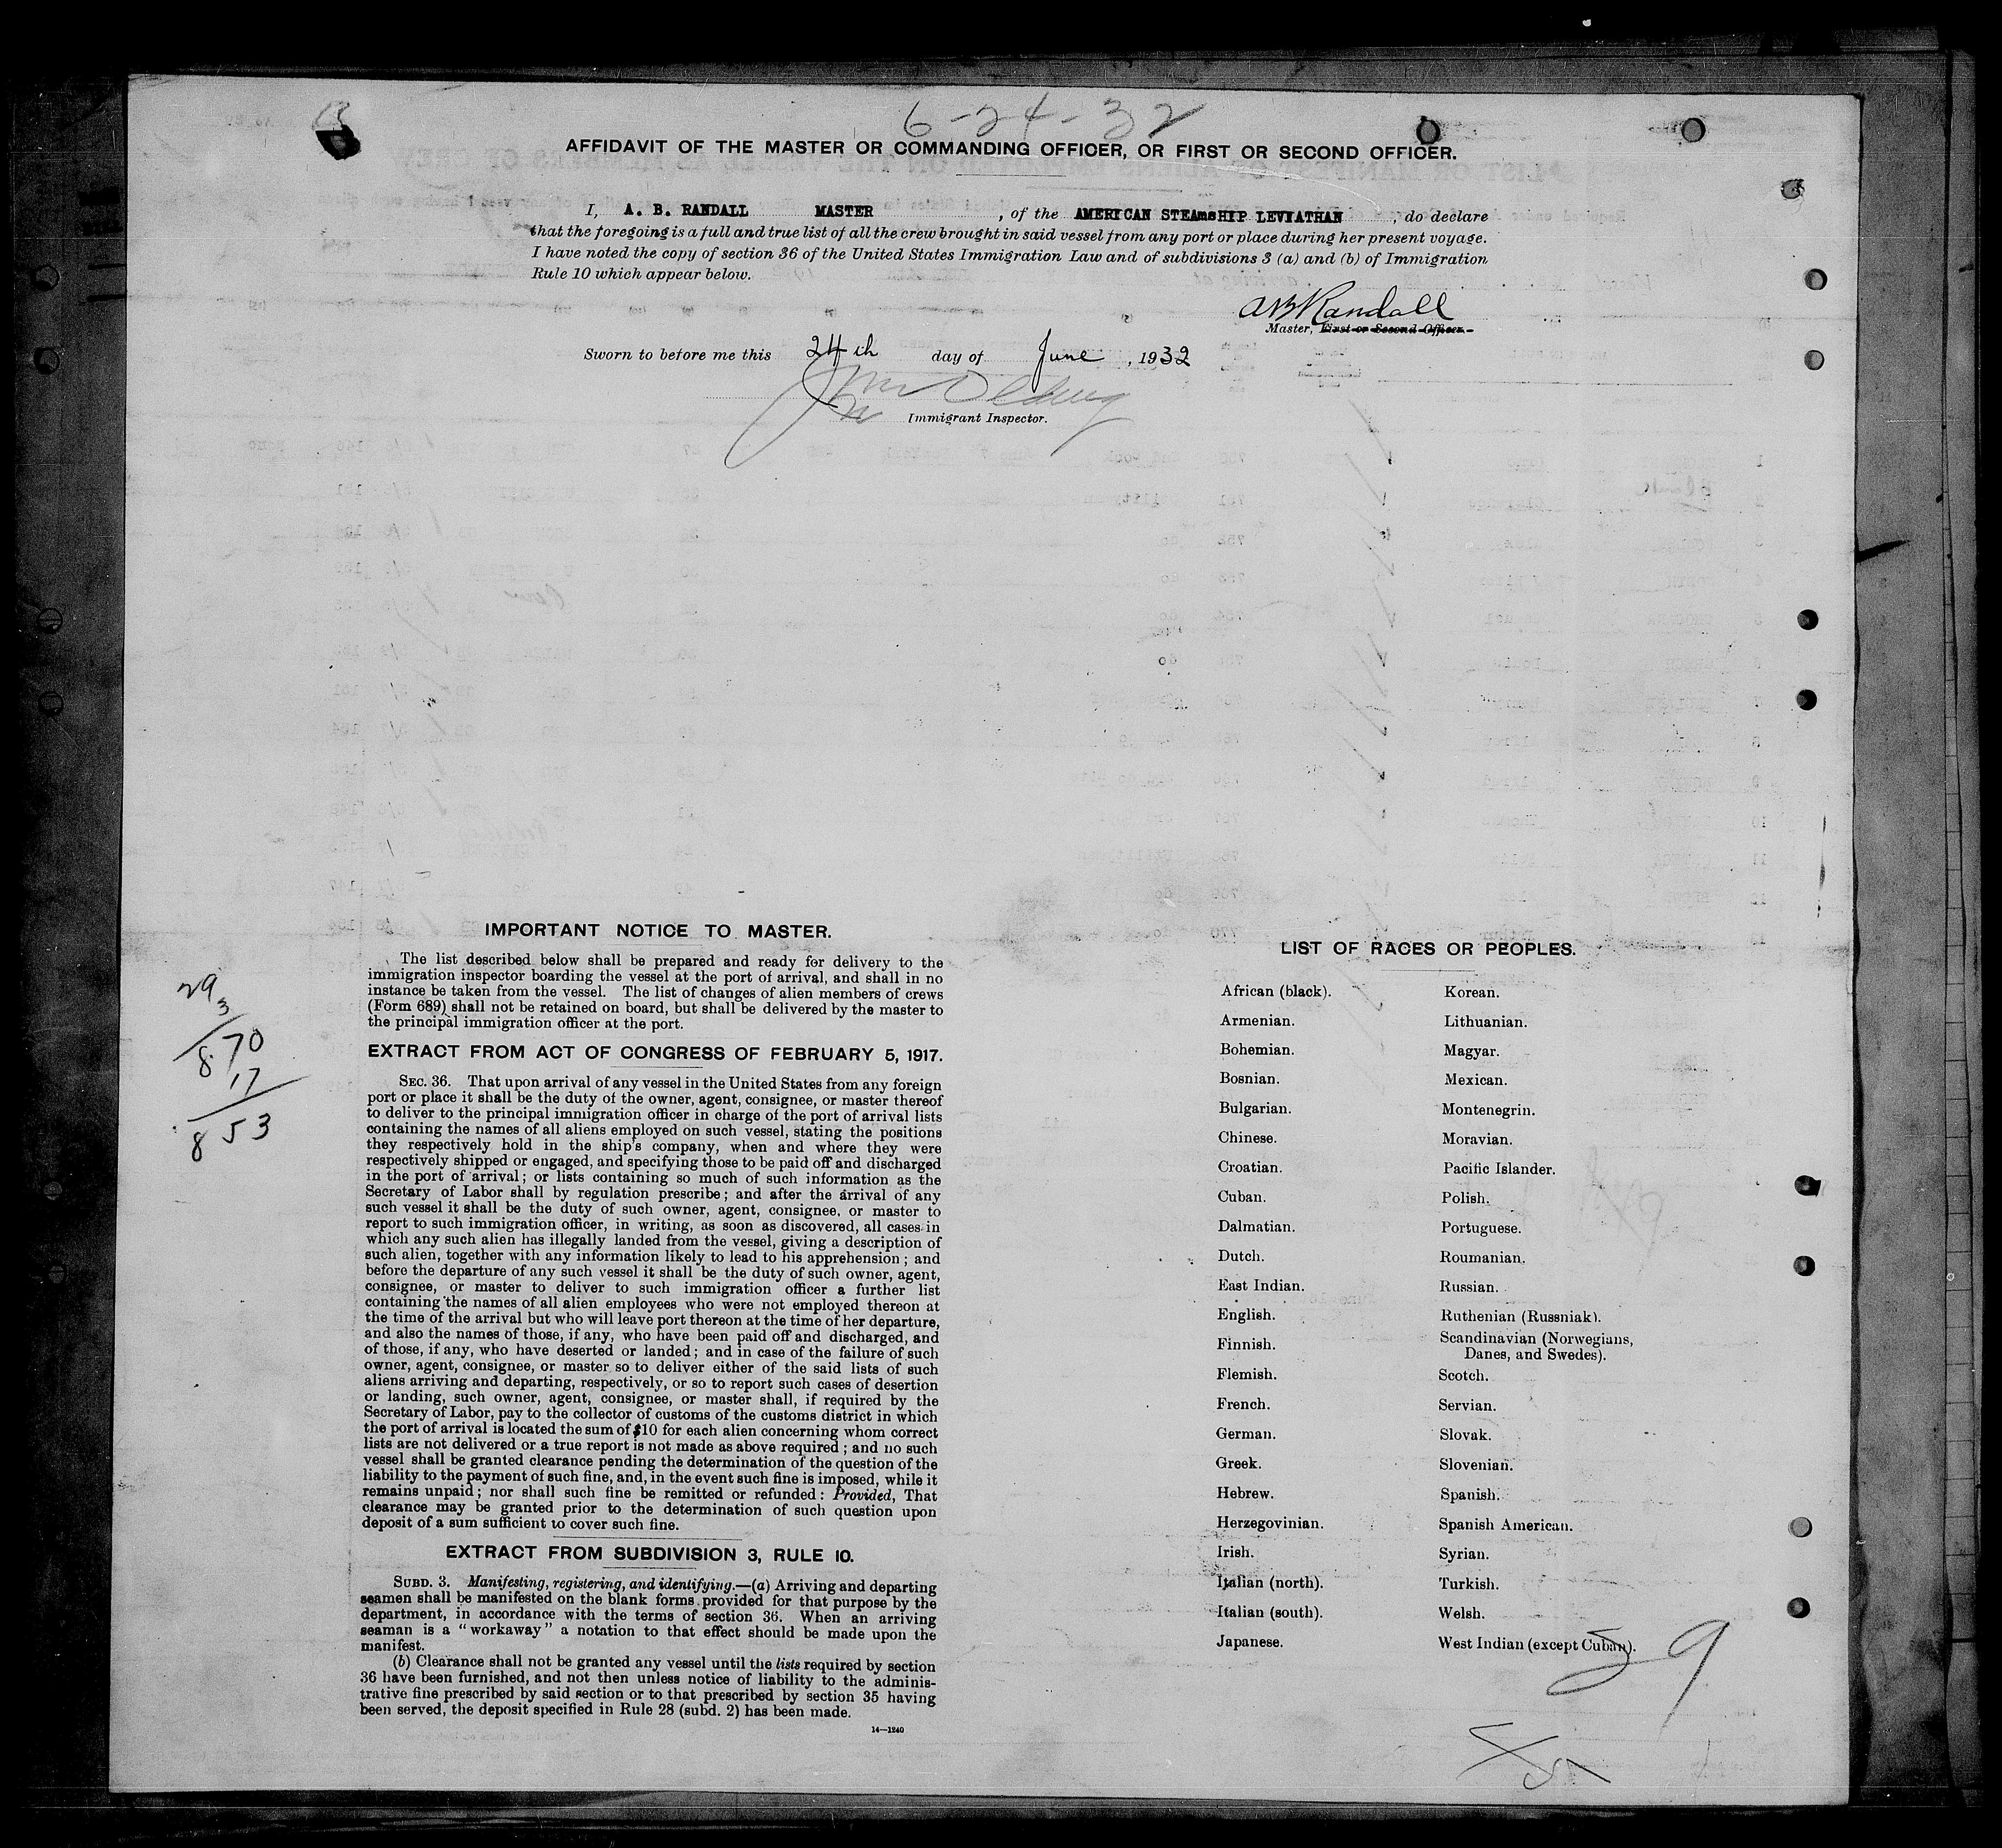 6-24-32
AFFIDAVIT OF THE MASTER OR COMMANDING OFFICER, OR FIRST OR SECOND OFFICER.
I, A. B. RANDALL MASTER , of the AMERICAN STEAmsHIP LEVIATHAN , do declare
that the foregoing is a full and true list of all the crew brought in said vessel from any port or place during her present voyage.
I have noted the copy of section 36 of the United States Immigration Law and of subdivisions 3 (a) and (b) of Immigration
Rule 10 which appear below.
AB Randall
Master, First or Second Officer.
Sworn to before me this 24th day of June , 1932
Immigrant Inspector.
IMPORTANT NOTICE TO MASTER.
The list described below shall be prepared and ready for delivery to the
immigration inspector boarding the vessel at the port of arrival, and shall in no
instance be taken from the vessel. The list of changes of alien members of crews
(Form 689) shall not be retained on board, but shall be delivered by the master to
the principal immigration officer at the port.
EXTRACT FROM ACT OF CONGRESS OF FEBRUARY 5, 1917.
SEC. 36. That upon arrival of any vessel in the United States from any foreign
port or place it shall be the duty of the owner, agent, consignee, or master thereof
to deliver to the principal immigration officer in charge of the port of arrival lists
containing the names of all aliens employed on such vessel, stating the positions
they respectively hold in the ship's company, when and where they were
respectively shipped or engaged, and specifying those to be paid off and discharged
in the port of arrival; or lists containing so much of such information as the
Secretary of Labor shall by regulation prescribe; and after the arrival of any
such vessel it shall be the duty of such owner, agent, consignee, or master to
report to such immigration officer, in writing, as soon as discovered, all cases in
which any such alien has illegally landed from the vessel, giving a description of
such alien, together with any information likely to lead to his apprehension; and
before the departure of any such vessel it shall be the duty of such owner, agent,
consignee, or master to deliver to such immigration officer a further list
containing the names of all alien employees who were not employed thereon at
the time of the arrival but who will leave port thereon at the time of her departure,
and also the names of those, if any, who have been paid off and discharged, and
of those, if any, who have deserted or landed; and in case of the failure of such
owner, agent, consignee, or master so to deliver either of the said lists of such
aliens arriving and departing, respectively, or so to report such cases of desertion
or landing, such owner, agent, consignee, or master shall, if required by the
Secretary of Labor, pay to the collector of customs of the customs district in which
the port of arrival is located the sum of $10 for each alien concerning whom correct
lists are not delivered or a true report is not made as above required; and no such
vessel shall be granted clearance pending the determination of the question of the
liability to the payment of such fine, and, in the event such fine is imposed, while it
remains unpaid; nor shall such fine be remitted or refunded: Provided, That
clearance may be granted prior to the determination of such question upon
deposit of a sum sufficient to cover such fine.
EXTRACT FROM SUBDIVISION 3, RULE 10.
SUBD. 3. Manifesting, registering, and identifying.—(a) Arriving and departing
seamen shall be manifested on the blank forms provided for that purpose by the
department, in accordance with the terms of section 36. When an arriving
seaman is a "workaway" a notation to that effect should be made upon the
manifest.
(b) Clearance shall not be granted any vessel until the lists required by section
36 have been furnished, and not then unless notice of liability to the adminis-
trative fine prescribed by said section or to that prescribed by section 35 having
been served, the deposit specified in Rule 28 (subd. 2) has been made.
14—1240
29
3
870
17
853
LIST OF RACES OR PEOPLES.
African (black).
Armenian.
Bohemian.
Bosnian.
Bulgarian.
Chinese.
Croatian.
Cuban.
Dalmatian.
Dutch.
East Indian.
English.
Finnish.
Flemish.
French.
German.
Greek.
Hebrew.
Herzegovinian.
Irish.
Italian (north).
Italian (south).
Japanese.
Korean.
Lithuanian.
Magyar.
Mexican.
Montenegrin.
Moravian.
Pacific Islander.
Polish.
Portuguese.
Roumanian.
Russian.
Ruthenian (Russniak).
Scandinavian (Norwegians,
Danes, and Swedes).
Scotch.
Servian.
Slovak.
Slovenian.
Spanish.
Spanish American.
Syrian.
Turkish.
Welsh.
West Indian (except Cuban).
59